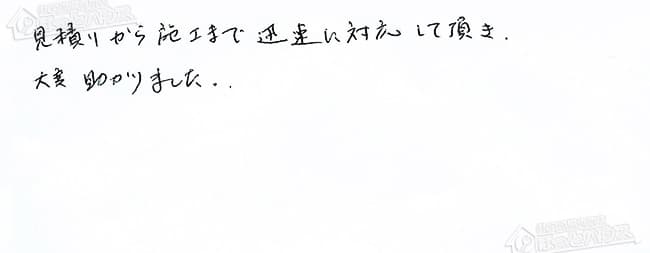 見積りから施工まで迅速に対応して頂き.
大変助かりました..